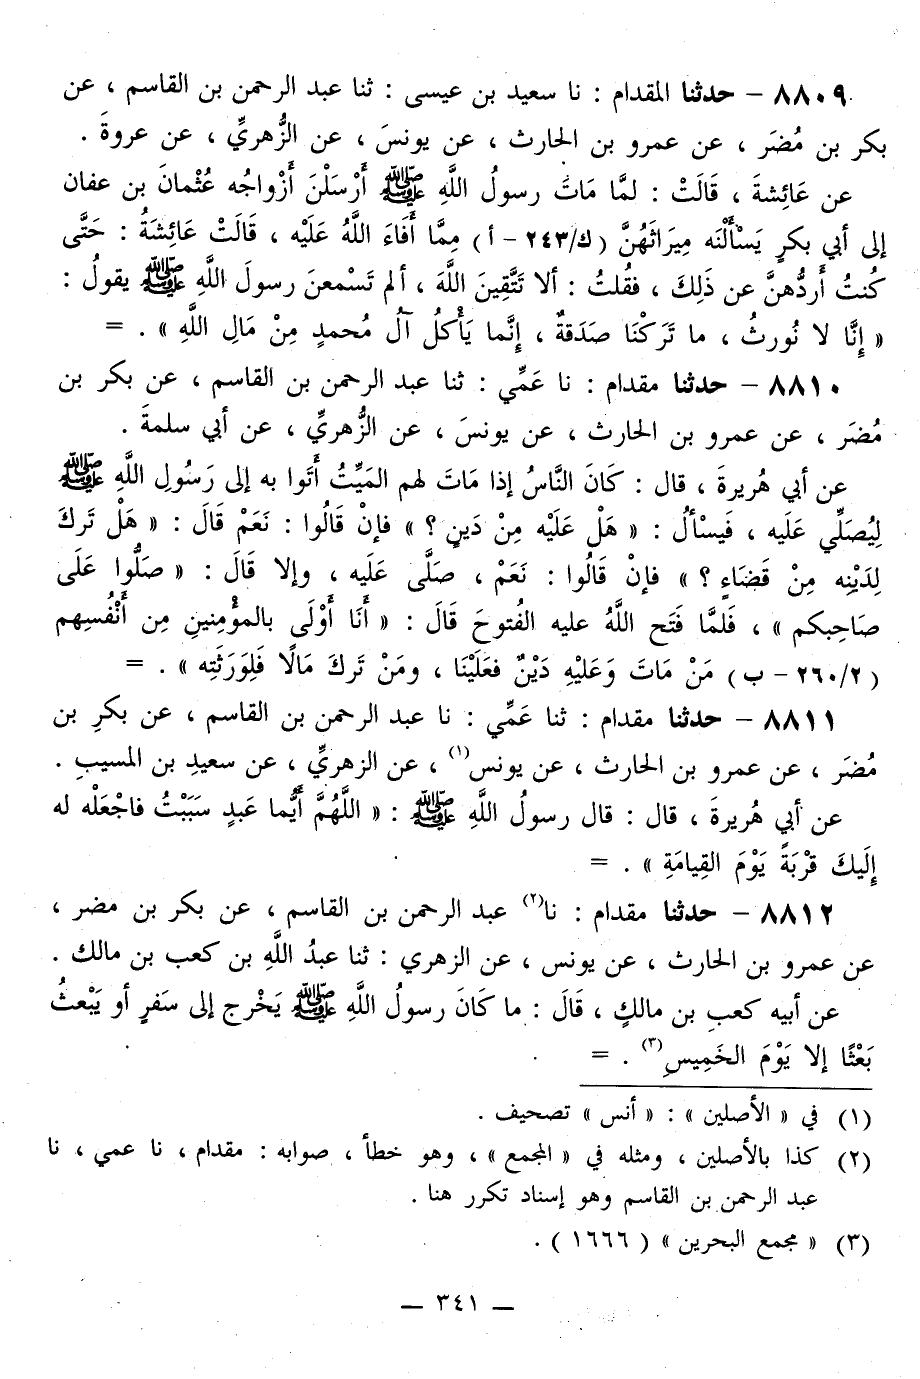 ٨٨٠٩ – حدثنا المقدام : نا سعيد بن عيسى : ثنا عبد الرحمن بن القاسم ، عن
بكر بن مُضَر ، عن عمرو بن الحارث ، عن يونسَ ، عن الزُّهريِّ ، عن عروةَ .
عن عَائِشةَ ، قَالَتْ : لمَّا مَاتَ رسولُ اللَّهِ ﷺ أَرْسَلْنَ أَزْواجُه عُثْمانَ بن عفان
إلى أبي بكرٍ يَسْأَلْنَه مِيَراثَهُنَّ (ك/٢٤٣ – أ) مِمَّا أَفَاءَ اللَّهُ عَلَيْه ، قَالَتْ عَائِشَةُ : حَتَّى
كُنتُ أَردُّهنَّ عن ذَلِكَ ، فقُلتُ : ألا تَتَّقِينَ اللَّهَ ، ألم تَسْمعنَ رسولَ اللَّهِ ﷺ يقولُ :
« إِنَّا لا نُورثُ ، ما تَرَكْنَا صَدَقةٌ ، إِنَّما يَأْكلُ آلُ مُحمدٍ مِنْ مَالِ اللَّهِ » . =
٨٨١٠ – حدثنا مقدام : نا عَمِّي : ثنا عبد الرحمن بن القاسم ، عن بكر بن
مُضَر ، عن عمرو بن الحارث ، عن يونسَ ، عن الزُّهريِّ ، عن أبي سلمةَ .
عن أبي هُريرةَ ، قال : كَانَ النَّاسُ إذا مَاتَ لهم المَيِّتُ أَتَوا به إلى رَسُولِ اللَّهِ ﷺ
لِيُصَلِّي عَلَيه ، فَيسْألُ : « هَلْ عَلَيْه مِنْ دَينٍ ؟ » فإنْ قَالُوا : نَعَمْ قَالَ : « هَلْ تَركَ
لِدَيْنِه مِنْ قَضَاءٍ ؟ » فإنْ قَالُوا : نَعَمْ ، صَلَّى عَلَيه ، وإلا قَالَ : « صَلُّوا عَلَى
صَاحِبكم » ، فَلمَّا فَتَح اللَّهُ عليه الفُتوحَ قَالَ : « أَنَا أَوْلَى بالمؤْمِنينِ مِن أَنْفُسِهم
(٢/٢٦٠ – ب) مَنْ مَاتَ وَعَلَيْهِ دَيْنٌ فعَلَيْنَا ، ومَنْ تَركَ مَالًا فَلِوَرَثَتِه » . =
٨٨١١ – حدثنا مقدام : ثنا عَمِّي : نا عبد الرحمن بن القاسم ، عن بكرِ بن
مُضَر ، عن عمرو بن الحارث ، عن يونس(١) ، عن الزهريِّ ، عن سعيدِ بن المسيبِ .
عن أبي هُريرةَ ، قال : قال رسولُ اللَّهِ ﷺ : « اللَّهُمَّ أَيُّما عَبدٍ سَبَبْتُ فاجْعَلْه له
إِلَيكَ قرْبَةً يَوْمَ القِيامَةِ » . =
٨٨١٢ – حدثنا مقدام : نا(٢) عبد الرحمن بن القاسم ، عن بكر بن مضر ،
عن عمرو بن الحارث ، عن يونس ، عن الزهري : ثنا عبدُ اللَّهِ بن كعب بن مالك .
عن أبيه كعبِ بن مالكٍ ، قَالَ : ما كَانَ رسولُ اللَّهِ ﷺ يَخْرج إلى سَفرٍ أو يَبْعثُ
بَعْثًا إلا يَوْمَ الخَمِيسِ(٣) . =
(١) في « الأصلين » : « أنس » تصحيف .
(٢) كذا بالأصلين ، ومثله في « المجمع » ، وهو خطأ ، صوابه : مقدام ، نا عمي ، نا
عبد الرحمن بن القاسم وهو إسناد تكرر هنا .
(٣) « مجمع البحرين » (١٦٦٦) .
— ٣٤١ —